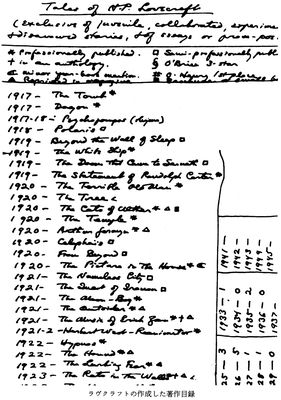 Tales of H.P. Lovecraft
(exclusive of juvenile, collaborated, experime
disavowed stories, & of essays or prose-poe.
* Professionally published. □ Semi-professionally publ
† in an anthology. § O'Brien 3-star
1917 — The Tomb *
1917 — Dagon *
1917-18 — Psychopompos (rhyme)
1918 — Polaris □
1919 — Beyond the Wall of Sleep □
1919 — The White Ship *
1919 — The Doom That Came to Sarnath □
1919 — The Statement of Randolph Carter *
1920 — The Terrible Old Man *
1920 — The Tree
1920 — The Cats of Ulthar * △ □
1920 — The Temple *
1920 — Arthur Jermyn * △
1920 — Celephaïs □
1920 — From Beyond □
1920 — The Picture in the House *
1921 — The Nameless City □
1921 — The Quest of Iranon □
1921 — The Moon-Bog *
1921 — The Outsider * △
1921 — The Music of Erich Zann * † △
1921-2 — Herbert West — Reanimator *
1922 — Hypnos *
1922 — The Hound * △
1922 — The Lurking Fear * △
1923 — The Rats in the Walls * † △
1941 —
1942 —
1943 —
1944 —
1945 —
1933 — 1
1934 — 0
1935 — 2
1936 — 0
1937 —
25 — 3
26 — 5
27 — 1
28 — 1
29 — 0
ラヴクラフトの作成した著作目録